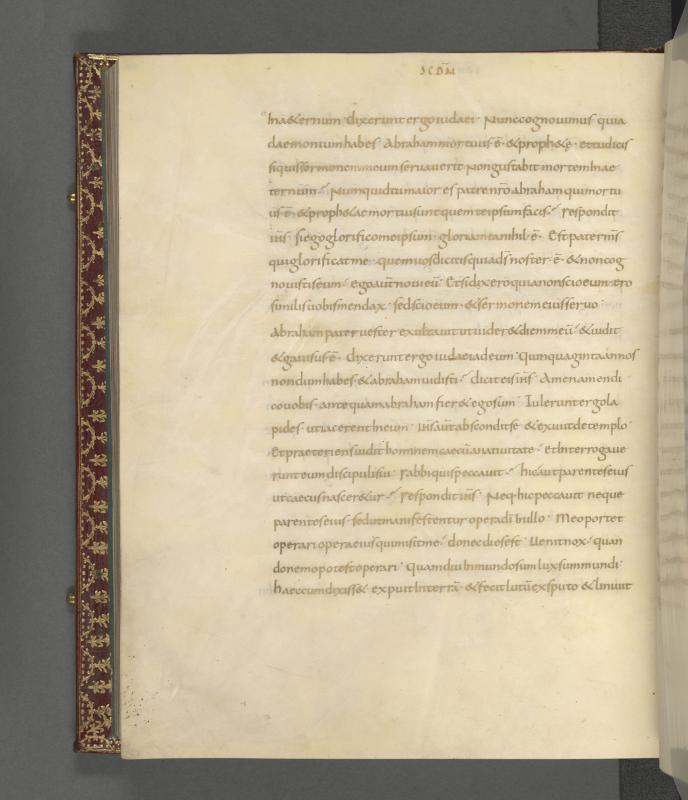 SCDM
In aeternum · Dixerunt ergo iudaei · Nunc cognouimus quia
daemonium habes · Abraham mortuus ē · & proph&ę · et tu dicis
si quis sermonem meum seruauerit non gustabit mortem In ae
ternum · Numquid tu maior es patre nr̄o abraham qui mortu
us ē · & proph&ae mortui sunt quem te ipsum facis · respondit
ih̄s · si ego glorifico me ipsum · gloria mea nihil ē · Est pater m̄s
qui glorificat me · quem uos dicitis quia d̄s noster ē · & non cog
nouistis eum · ego aut̄ noui eū · Et si dixero quia non scio eum · ero
similis uobis mendax · sed scio eum · & sermonem eius seruo
Abraham pater uester exultauit ut uider& diem meū · & uidit
& gauisus ē · Dixerunt ergo iudaei ad eum · Quinquaginta annos
nondum habes · & abraham uidisti · dicit eis ih̄s · Amen amen di
co uobis · ante quam abraham fier& ego sum · Tulerunt ergo la
pides · ut iacerent In eum · ih̄s aut̄ abscondit se · & exiuit de templo
Et praeteriens uidit hominem caecū a natiuitate · et Interrogaue
runt eum discipuli sui · rabbi quis peccauit · hic aut parentes eius
ut caecus nascer&ur · respondit ih̄s · Neq· hic peccauit neque
parentes eius · sed ut manifestentur opera dī In illo · Me oportet
operari opera eius qui misit me · donec dies est · Uenit nox · quan
do nemo potest operari · Quam diu In mundo sum lux sum mundi ·
haec cum dixiss& · expuit In terrā · & fecit lutū ex sputo & liniuit